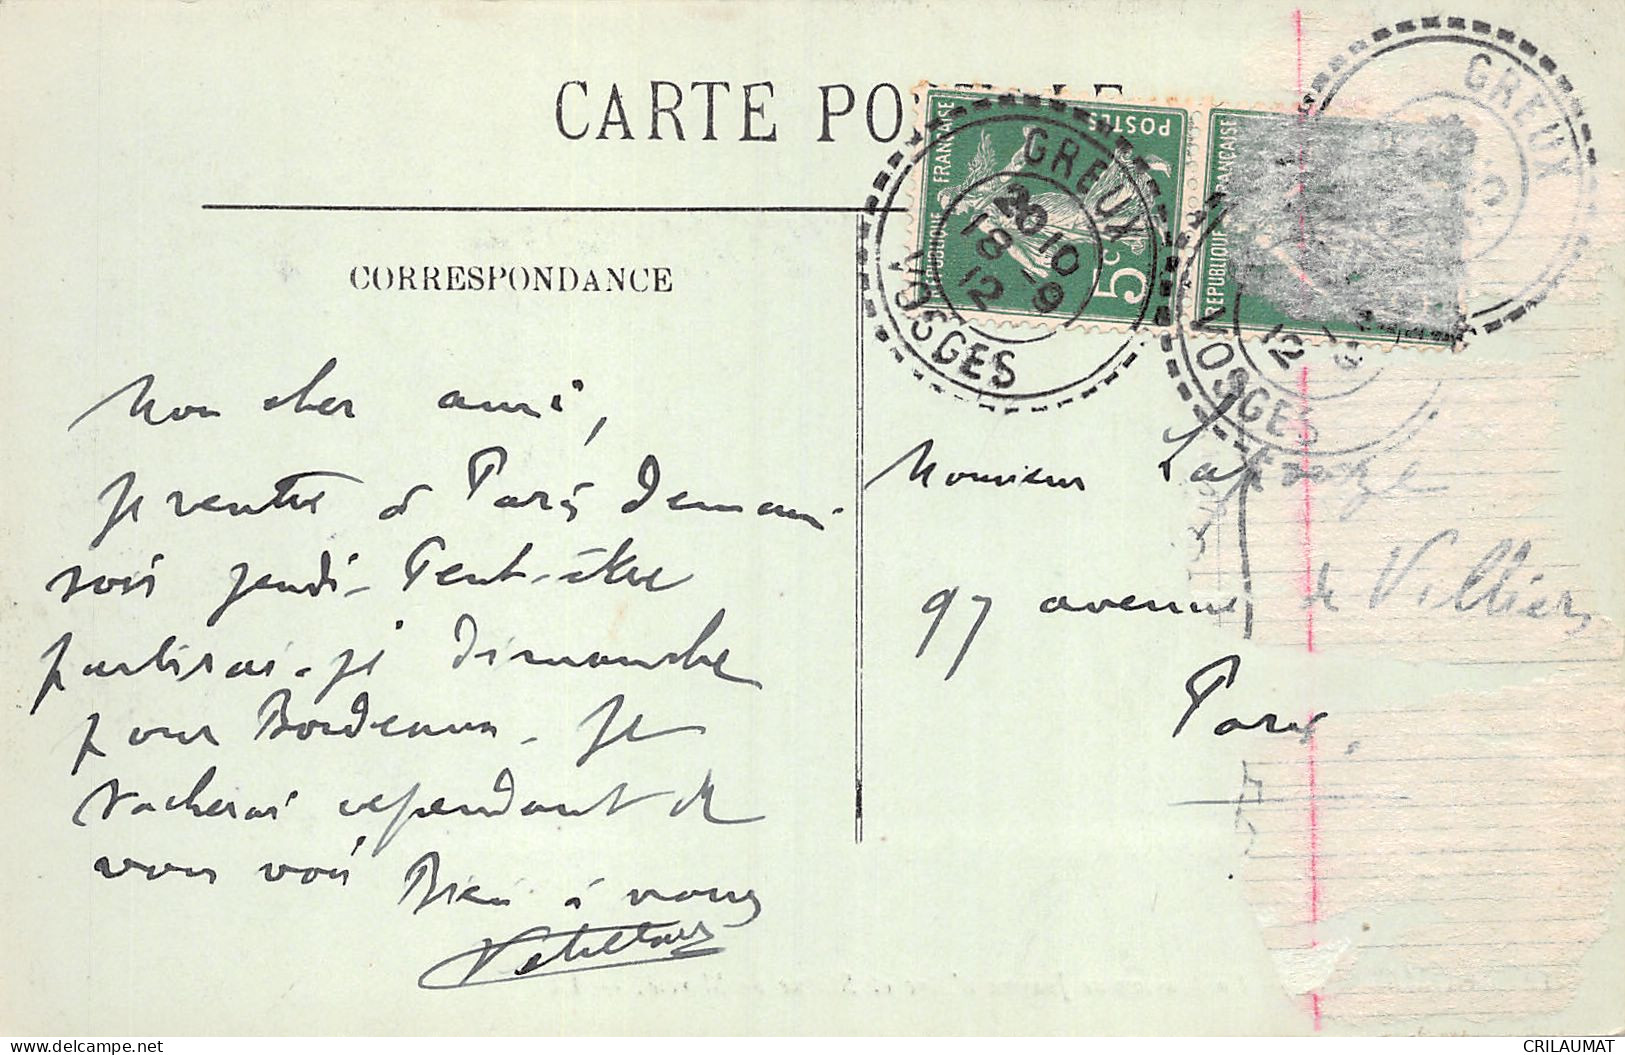 CARTE PO
CORRESPONDANCE
REPUBLIQUE FRANÇAISE
POSTES
5c
GREUX
20 10
18 -9
12
VOSGES
REPUBLIQUE FRANÇAISE
GREUX
12
VOSGES
Mon cher ami,
Je rentre à Paris demain
soir jeudi - Peut-être
partirai-je dimanche
pour Bordeaux - Je
tacherai cependant de
vous voir
Bien à vous
Monsieur
97 avenue de Villiers
Paris.
CRILAUMAT